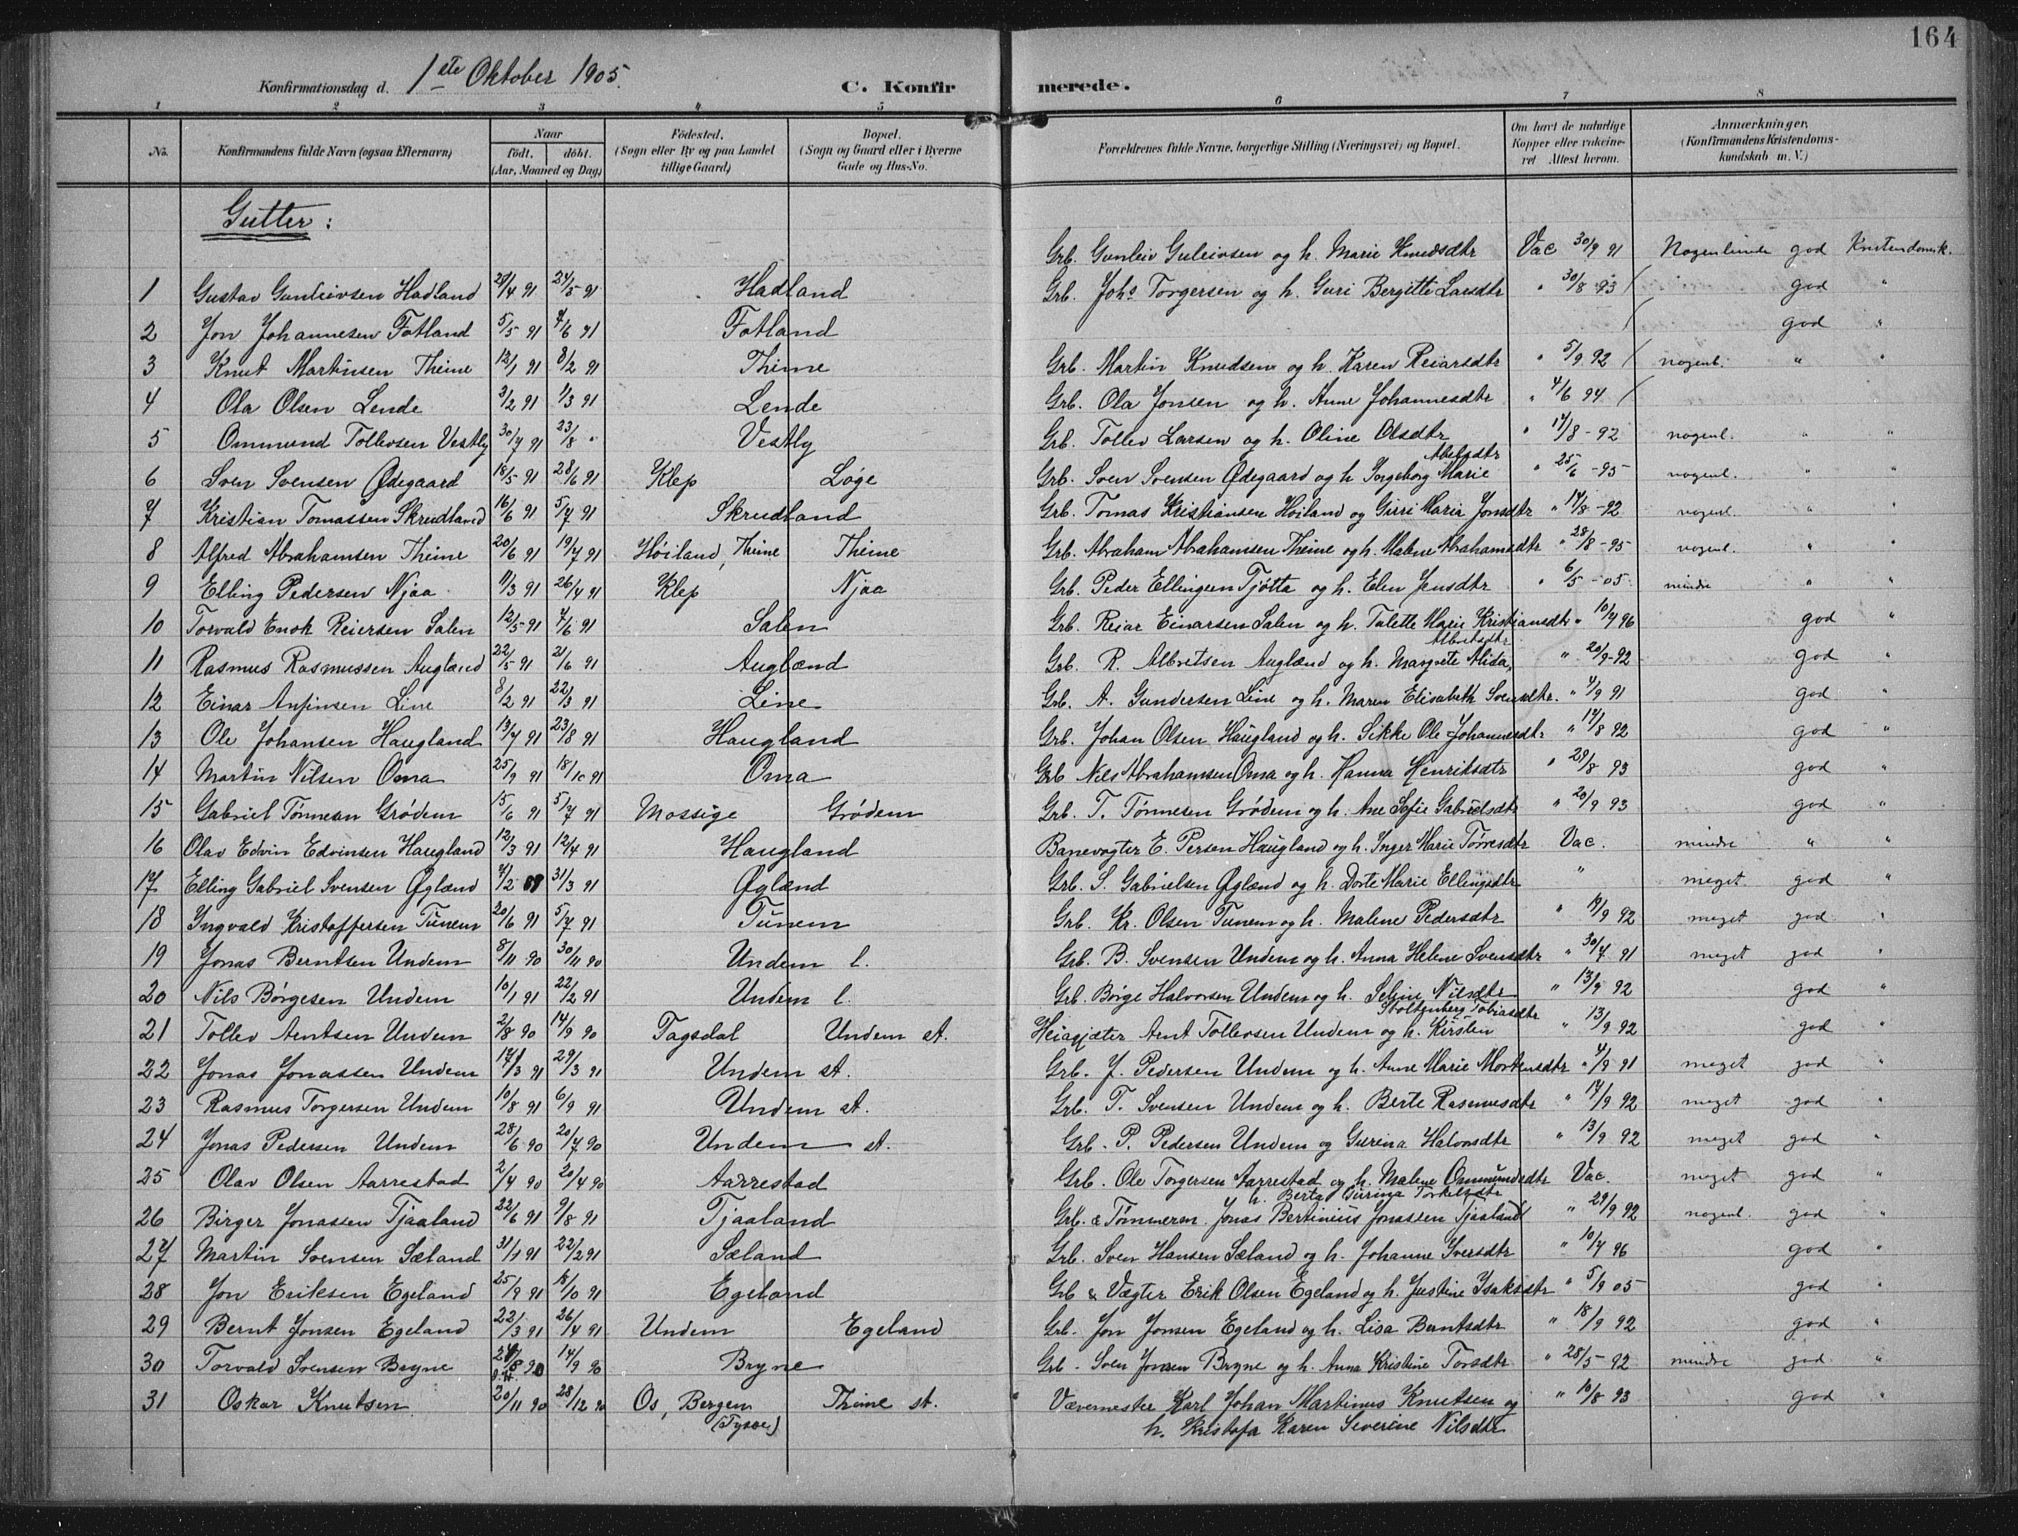 164
Konfirmationsdag d. 1ste Oktober 1905. C. Konfirmerede.
1 2 3 4 5 6 7 8
No. Konfirmandens fulde Navn (ogsaa Efternavn) Naar födt. döbt. (Aar, Maaned og Dag) Födested. (Sogn eller By og paa Landet tillige Gaard) Bopæl. (Sogn og Gaard eller i Byerne Gade og Hus-No. Forældrenes fulde Navne, borgerlige Stilling (Næringsvei) og Bopæl. Om havt de naturlige Kopper eller vakcineret Attest herom. Anmærkninger. (Konfirmandens Kristendomskundskab m. V.)
Gutter:
1 Gustav Gunleivsen Hadland 24/5 91 Hadland Grb. Gunleiv Guleivsen og h. Marie Knudsdtr Vac 30/9 91 Nogenlunde god Kristendomsk.
2 Jon Johannesen Fotland 5/5 91 7/6 91 Fotland Grb. Johs Torgersen og h. Guri Bergitte Larsdtr " 30/8 93 god "
god "
3 Knut Martinsen Theime 12/1 91 8/2 91 Thime Grb. Martin Knudsen og h. Karen Reiarsdtr " 5/9 92 nogenl. " "
4 Ola Olsen Lende 3/2 91 1/3 91 Lende Grb. Ola Jonsen og h. Anne Johannesdtr " 4/6 94
5 Ommund Tollevsen Vestly 30/7 91 23/8 " Vestly Grb. Tollev Larsen og h. Oline Olsdtr " 17/8 - 92 nogenl. " "
6 Sven Svensen Ødegaard 18/5 91 28/6 91 Klep Løge Grb. Sven Svensen Ødegaard og h Ingeborg Marie Abelsdtr " 25/6 - 95 nogenl. " "
7 Kristian Tomassen Skrudland 16/6 91 5/7 91 Skrudland Grb. Tomas Kristiansen Høiland og Guri Maria Jonsdtr " 17/8 - 92 nogenl. " "
8 Alfred Abrahamsen Thime 20/6 91 19/7 91 Høiland, Thime Thime Grb. Abraham Abrahamsen Theime og h. Malene Abrahamsdtr " 28/8 - 95 nogenl. " "
9 Elling Pedersen Njaa 11/3 91 26/4 91 Klep Njaa Grb. Peder Ellingsen Tjøtta og h. Elen Jensdtr " 6/5 - 05 mindre " "
10 Torvald Enok Reiersen Salen 12/5 91 7/6 91 Salen Grb. Reiar Einarsen Salen og h. Talette Marie Kristiansdtr " 10/7 96 god "
11 Rasmus Rasmussen Auglænd 22/5 91 21/6 91 Auglænd Grb. R. Albretsen Auglænd og h. Margrete Alida Albretsdtr " 20/9 - 92 god "
12 Einar Anfinsen Line 8/2 91 22/3 91 Line Grb. A. Gundersen Line og h. Maren Elisabeth Svensdtr. " 4/9 91 god "
13 Ole Johansen Haugland 13/7 91 23/8 91 Haugland Grb. Johan Olsen Haugland og h. Sikke Ole Johannesdtr " 17/8 92 god "
14 Martin Nilsen Oma 25/9 91 18/10 91 Oma Grb Nils Abrahamsen Oma og h. Hanna Henriksdtr " 29/8 93 god "
15 Gabriel Tønnesen Grødem 15/6 91 5/7 91 Mossige Grødem Grb. T. Tønnesen Grødem og h. Ane Sofie Gabrielsdtr " 20/9 93 god "
16 Olav Edvin Edvinsen Haugland 12/3 91 12/4 91 Haugland Banevogter E. Persen Haugland og h. Inger Marie Tørresdtr Vac. mindre " "
17 Elling Gabriel Svensen Øglænd 31/3 91 Øglænd Grb. S. Gabrielsen Øglænd og h. Dorte Marie Ellingsdtr " meget god "
18 Ingvald Kristoffersen Tunem 20/6 91 5/7 91 Tunem Grb. Kr. Olsen Tunem og h. Malene Pedersdtr " 19/9 92 meget god "
19 Jonas Berntsen Undem 8/11 90 30/11 90 Undem l. Grb. B. Svensen Undem og h. Anna Helene Svensdtr " 30/7 91 meget god "
20 Nils Børgesen Undem 10/1 91 22/2 91 Undem l. Grb. Børge Halvorsen Undem og h. Seline Nilsdtr " 13/9 92 god "
21 Tollev Arntsen Undem 2/8 90 14/9 90 Tagsdal Undem st. Heiagjæter Arnt Tollevsen Undem og h. Kirsten Stoltenberg Tobiasdtr " 13/9 92 god "
22 Jonas Jonassen Undem 17/3 91 29/3 91 Undem st. Grb. J. Pedersen Undem og h. Anne Marie Mortensdtr " 4/9 91 meget god "
23 Rasmus Torgersen Undem 10/8 91 6/9 91 Undem st. Grb. T. Svensen Undem og h. Berte Rasmusdtr " 17/9 92 meget god "
24 Jonas Pedersen Undem 28/6 90 20/7 90 Undem st. Grb. P. Pedersen Undem og Gurina Halvorsdtr " 13/9 92 meget god "
25 Olav Olsen Aarrestad 2/4 90 20/4 90 Aarrestad Grb. Ole Torgersen Aarrestad og h. Malene Ommundsdtr Vac. meget god "
26 Birger Jonassen Tjaaland 22/6 91 9/8 91 Tjaaland Grb. & Tømmerm. Jonas Bertinius Jonassen Tjaaland h. Berta Gurina Torkelsdtr " 29/9 92 nogenl. god "
27 Martin Svensen Sæland 31/1 91 22/2 91 Sæland Grb. Sven Hansen Sæland og h. Johanne Sversdtr " 10/7 96 god "
28 Jon Eriksen Egeland 25/9 91 18/10 91 Egeland Grb & Vægter Erik Olsen Egeland og h. Justine Isaksdtr " 5/9 05 god "
29 Bernt Jonsen Egeland 22/3 91 26/4 91 Undem Egeland Grb. Jon Jonsen Egeland og h. Lisa Berntsdtr " 18/9 92 god "
30 Torvald Svensen Bryne 14/9 90 Bryne Grb. Sven Jonsen Bryne og h. Anna Kristine Torsdtr " 28/5 - 92 mindre god "
31 Oskar Knutsen 20/11 90 28/12 90 Os, Bergen Thime st. Vævemester Karl Johan Martinus Knutsen og " 10/8 93 god "
(Tysse) h. Kristofa Karen Severine Nilsdtr